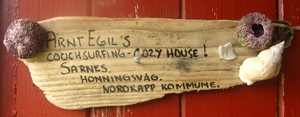 ARNT EGIL'S
COUCHSURFING-COZY HOUSE!
SARNES.
HONNINGSVÅG.
NORDKAPP KOMMUNE.